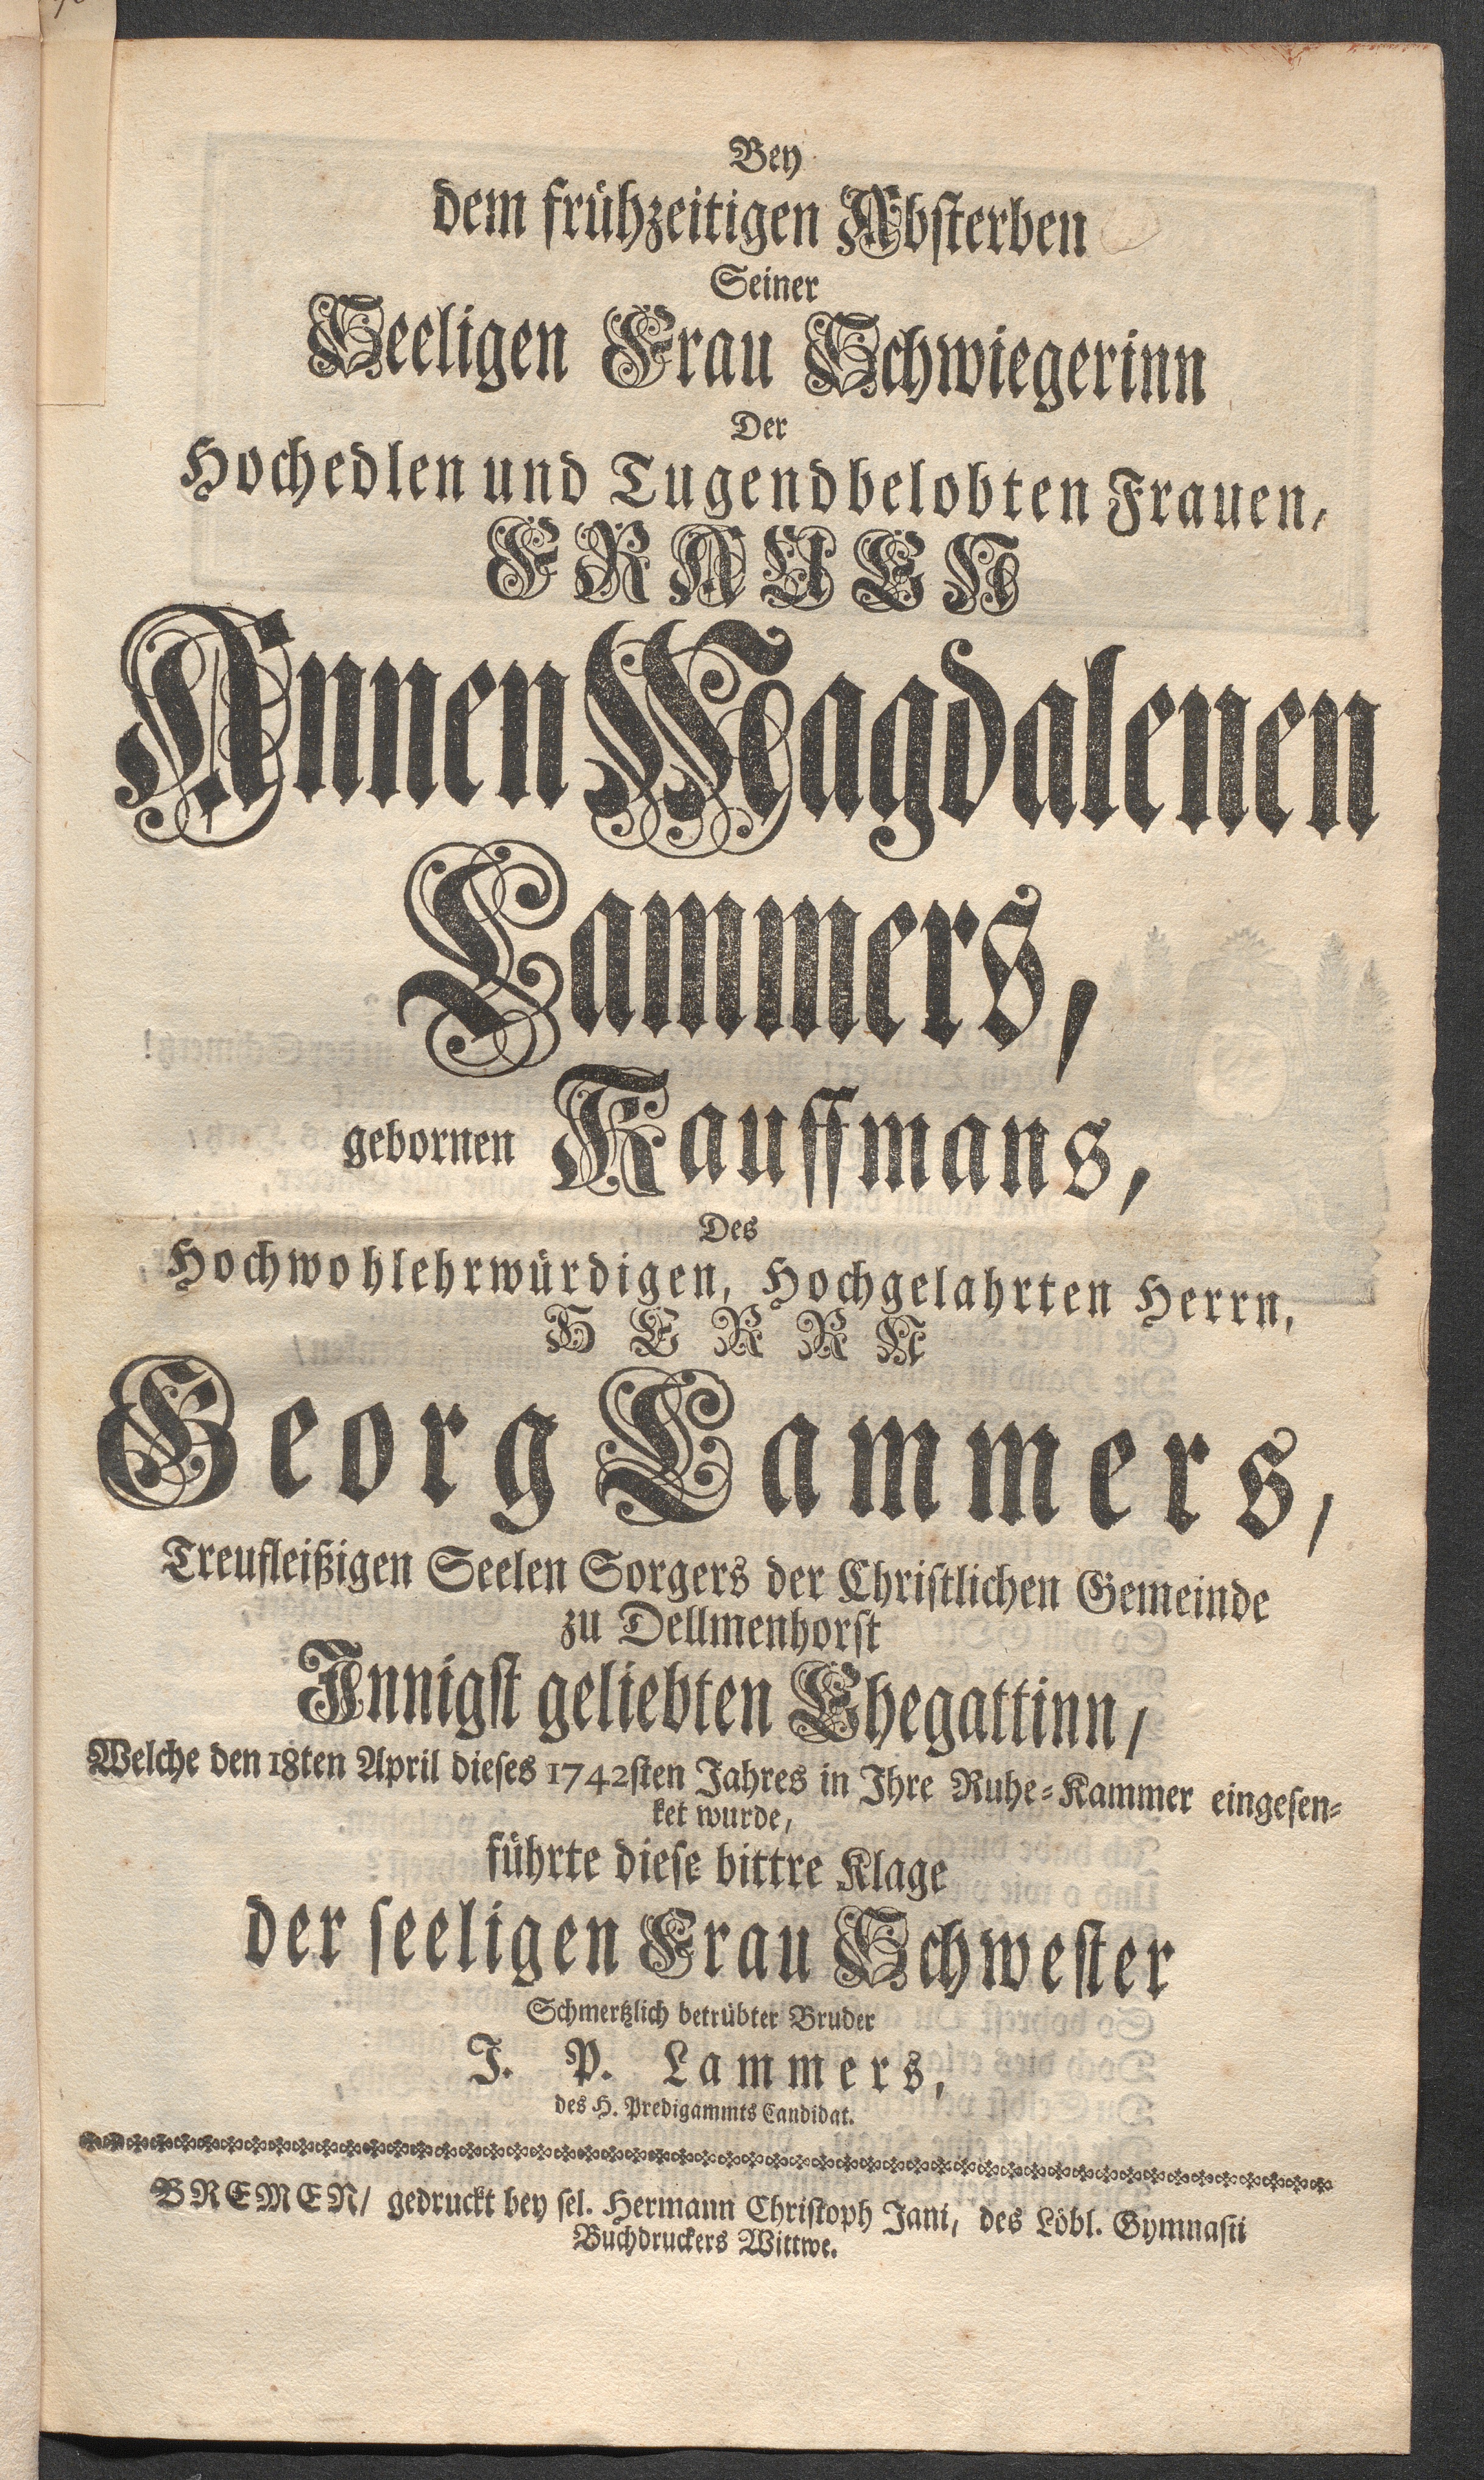 Bey
dem frühzeitigen Absterben
Seiner
Seeligen Frau Schwiegerinn
Der
Hochedlen und Tugendbelobten Frauen,
FRAUEN
Annen Magdalenen
Lammers,
gebornen Kauffmans,
Des
Hochwohlehrwürdigen, Hochgelahrten Herrn,
HERRN
Georg Lammers,
Treufleißigen Seelen Sorgers der Christlichen Gemeinde
zu Dellmenhorst
Innigst geliebten Ehegattinn/
Welche den 18ten April dieses 1742sten Jahres in Ihre Ruhe-Kammer eingesen-
ket wurde,
führte diese bittre Klage
der seeligen Frau Schwester
Schmertzlich betrübter Bruder
J. P. Lammers,
des H. Predigammts Candidat.
BREMEN/ gedruckt bey sel. Hermann Christoph Jani, des Löbl. Gymnasii
Buchdruckers Wittwe.